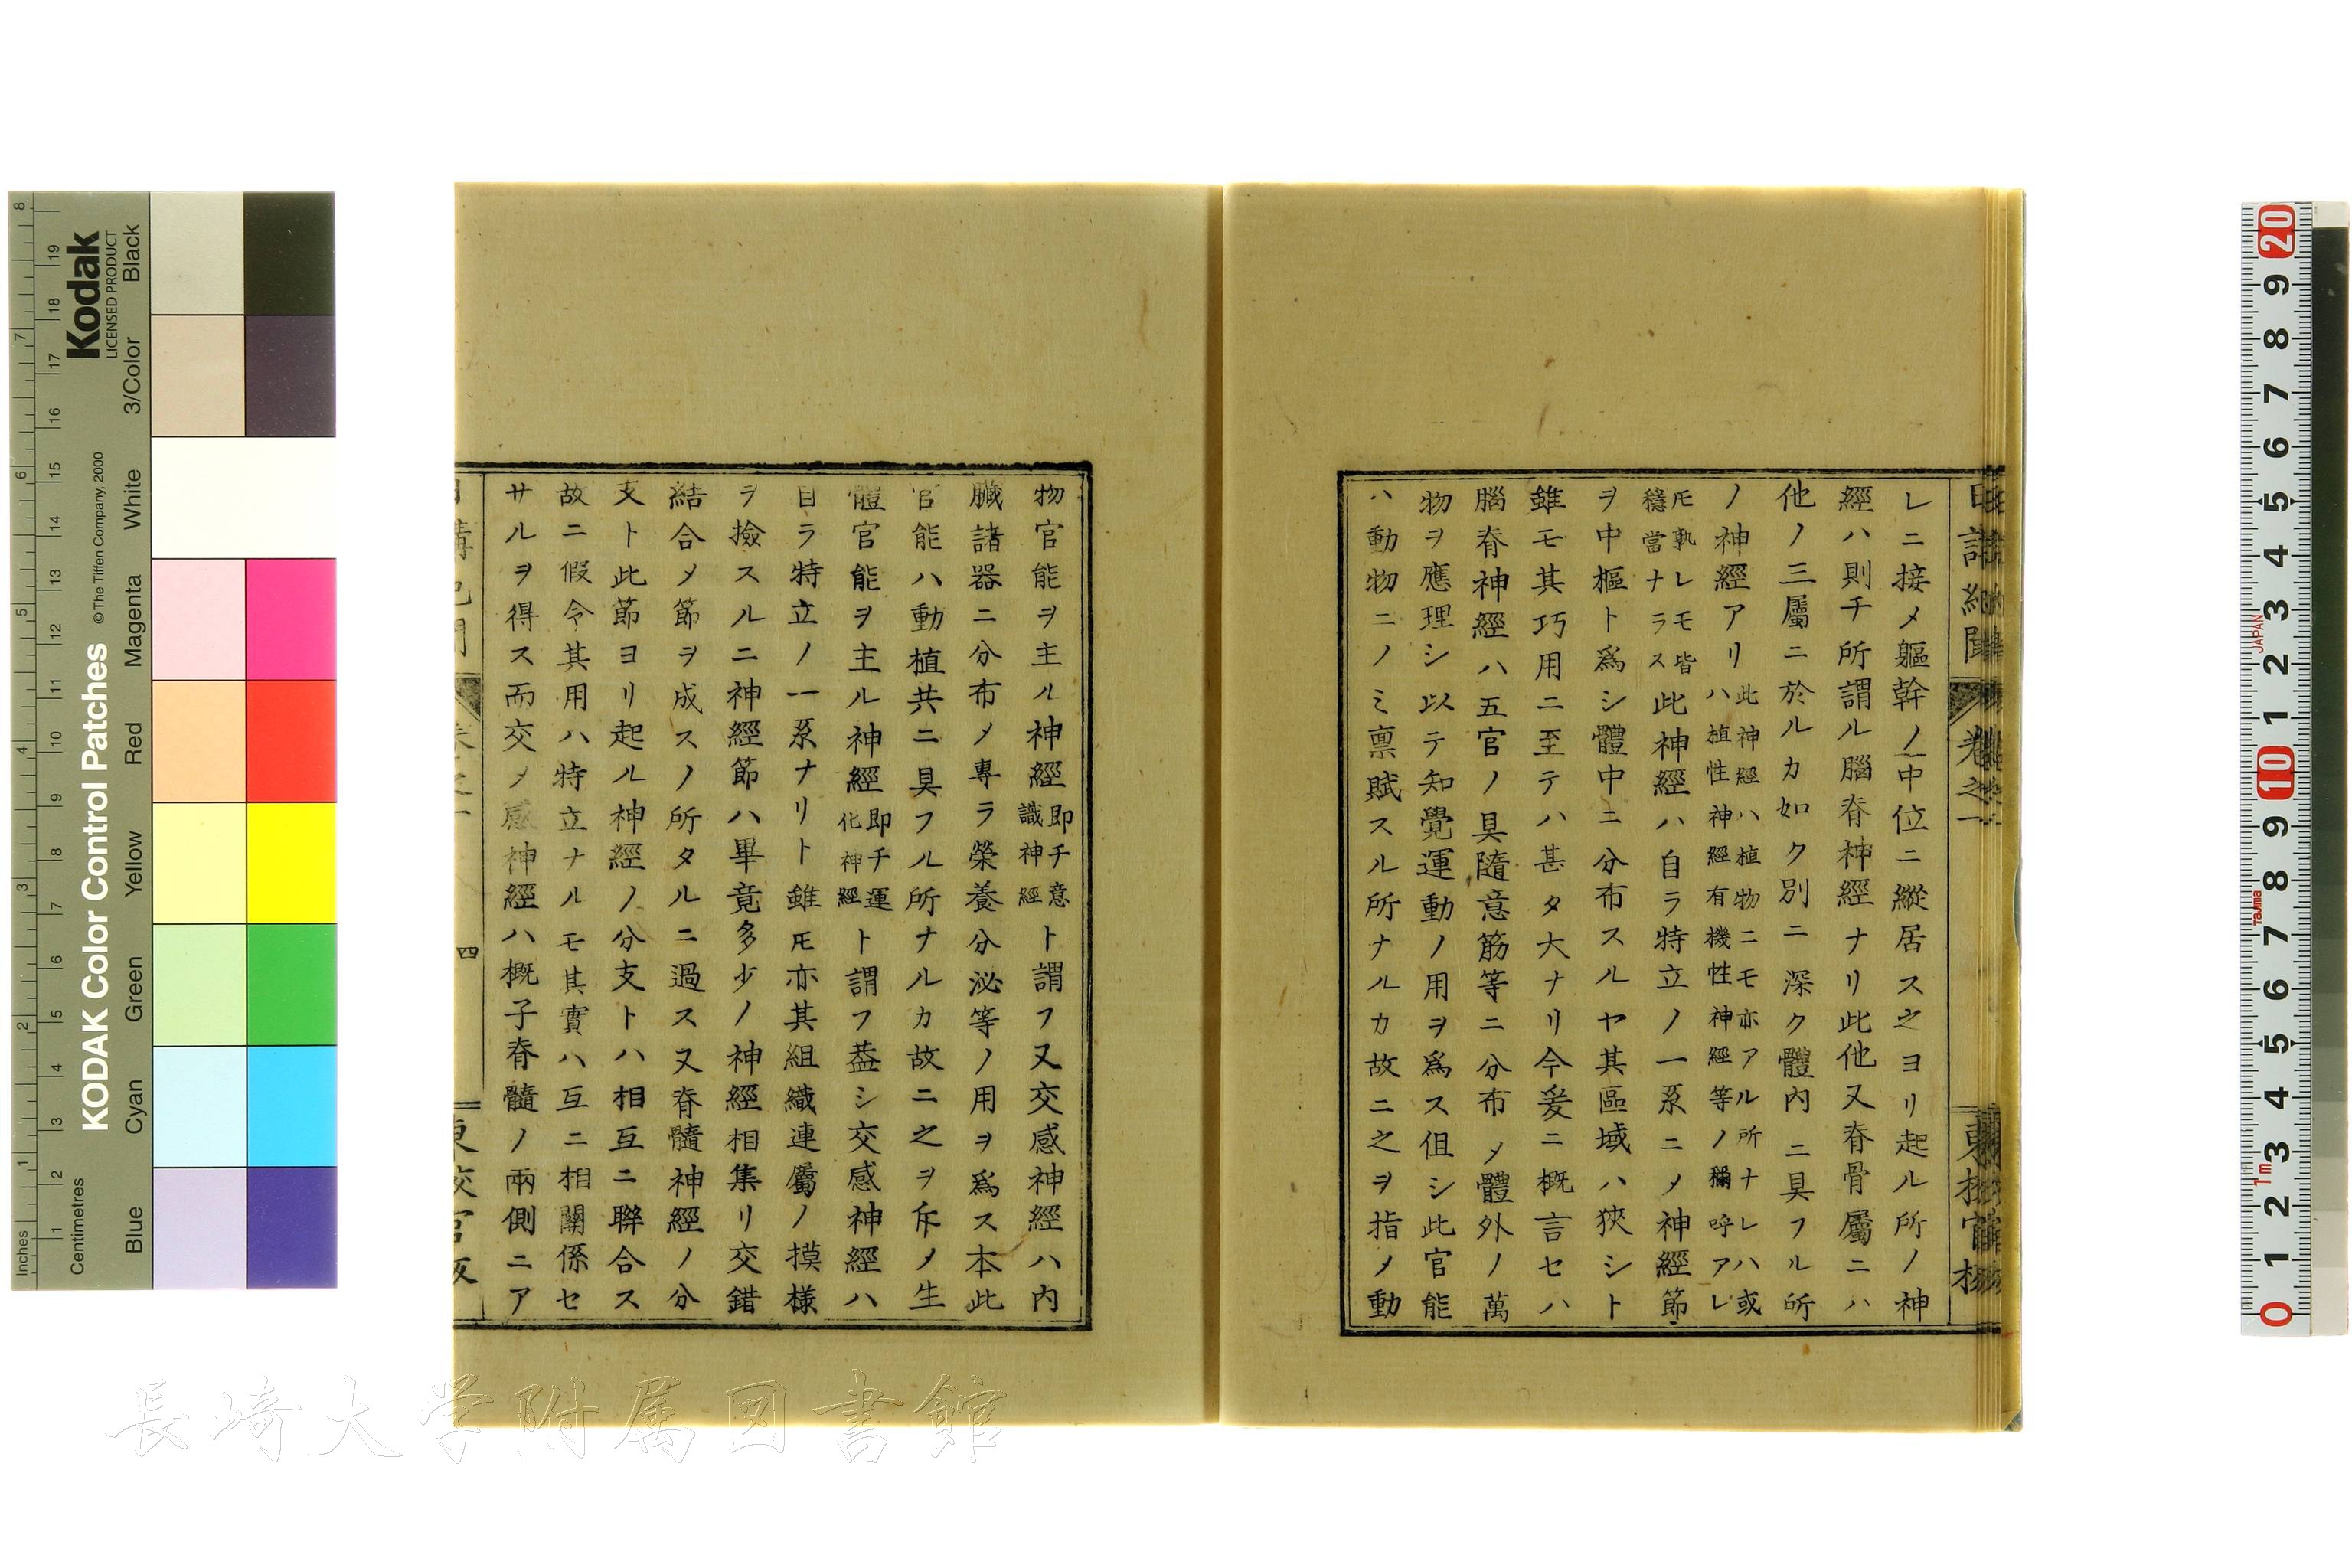 レニ接メ軀幹ノ中位ニ縱居ス之ヨリ起ル所ノ神
經ハ則チ所謂ル腦脊神經ナリ此他又脊骨屬ニハ
他ノ三屬ニ於ルカ如ク別ニ深ク體内ニ具フル所
ノ神經アリ此神經ハ植物ニモ亦アル所ナレハ或
ハ植性神經有機性神經等ノ稱呼アレ
𪜈孰レモ皆
穩當ナラス此神經ハ自ラ特立ノ一系ニメ神經節
ヲ中樞ト爲シ體中ニ分布スルヤ其區域ハ狹シト
雖モ其巧用ニ至テハ甚タ大ナリ今爰ニ概言セハ
腦脊神經ハ五官ノ具隨意筋等ニ分布メ體外ノ萬
物ヲ應理シ以テ知覺運動ノ用ヲ爲ス伹シ此官能
ハ動物ニノミ禀賦スル所ナルカ故ニ之ヲ指メ動
物官能ヲ主ル神經即チ意
識神經ト謂フ又交感神經ハ内
臟諸器ニ分布メ專ラ榮養分泌等ノ用ヲ爲ス本此
官能ハ動植共ニ具フル所ナルカ故ニ之ヲ斥メ生
體官能ヲ主ル神經即チ運
化神經ト謂フ葢シ交感神經ハ
自ラ特立ノ一系ナリト雖𪜈亦其組織連屬ノ摸様
ヲ撿スルニ神經節ハ畢竟多少ノ神經相集リ交錯
結合メ節ヲ成スノ所タルニ過ス又脊髓神經ノ分
支ト此節ヨリ起ル神經ノ分支トハ相互ニ聨合ス
故ニ假令其用ハ特立ナルモ其實ハ互ニ相關係セ
サルヲ得ス而交メ感神經ハ概子脊髓ノ兩側ニア
四
長崎大学附属図書館
Kodak
LICENSED PRODUCT
KODAK Color Control Patches
© The Tiffen Company, 2000
Inches
Centimetres
Blue
Cyan
Green
Yellow
Red
Magenta
White
3/Color
Black
1 2 3 4 5 6 7 8
1 2 3 4 5 6 7 8 9 10 11 12 13 14 15 16 17 18 19
20
9
8
7
6
5
4
3
2
1
10
9
8
7
6
5
4
3
2
1
0
JAPAN
Tajima
1m